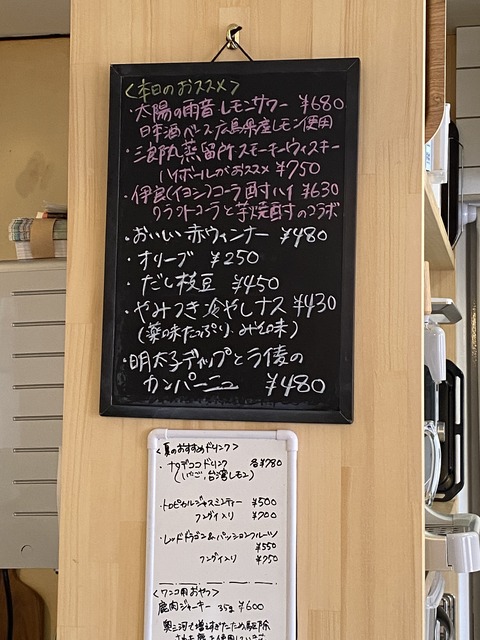 <本日のおススメ>
・太陽の雨音 レモンサワー ¥680
日本酒ベース 広島県産レモン使用
・三郎丸蒸留所スモーキーウィスキー
ハイボールがおススメ ¥750
・伊良(イヨシ)コーラ酎ハイ ¥630
クラフトコーラと芋焼酎のコラボ
・おいしい赤ウィンナー ¥480
・オリーブ ¥250
・だし枝豆 ¥450
・やみつき冷やしナス ¥430
(薬味たっぷり、みそ味)
・明太子ディップとライ麦の
カンパーニュ ¥480
<夏のおすすめドリンク>
・ナタデココドリンク 各¥780
(いちご、台湾レモン)
・トロピカルジャスミンティー ¥500
フングイ入り ¥700
・レッドドラゴン&パッションフルーツ
¥550
フングイ入り ¥750
<ワンコ用おやつ>
鹿肉ジャーキー 35g ¥600
奥三河で増えすぎたため駆除
された鹿を使用している